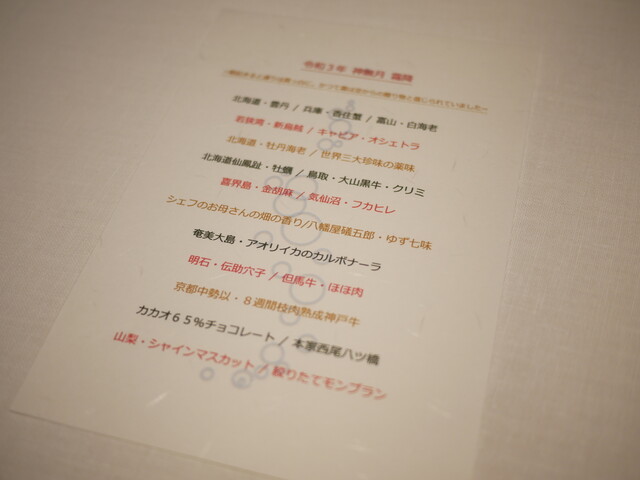 令和３年 神無月 霜降
北海道・雲丹 / 兵庫・香住蟹 / 富山・白海老
若狭湾・新烏賊 / キャビア・オシェトラ
北海道・牡丹海老 / 世界三大珍味の薬味
北海道仙鳳趾・牡蠣 / 鳥取・大山黒牛・クリミ
喜界島・金胡麻 / 気仙沼・フカヒレ
シェフのお母さんの畑の香り/八幡屋礒五郎・ゆず七味
奄美大島・アオリイカのカルボナーラ
明石・伝助穴子 / 但馬牛・ほほ肉
京都中勢以・８週間枝肉熟成神戸牛
カカオ６５％チョコレート / 本家西尾八ツ橋
山梨・シャインマスカット / 絞りたてモンブラン